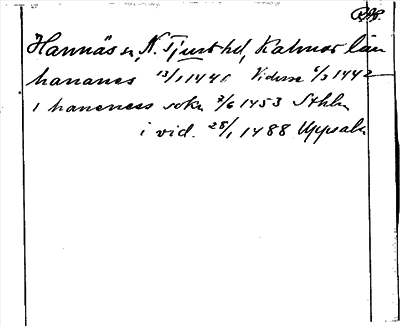 Hannäs sn, N. Tjust hd, Kalmar län
hananes 13/1 1440 Vidisse 6/3 1442
i haneness sokn 7/6 1453 Sthlm
i vid. 28/1 1488 Uppsala